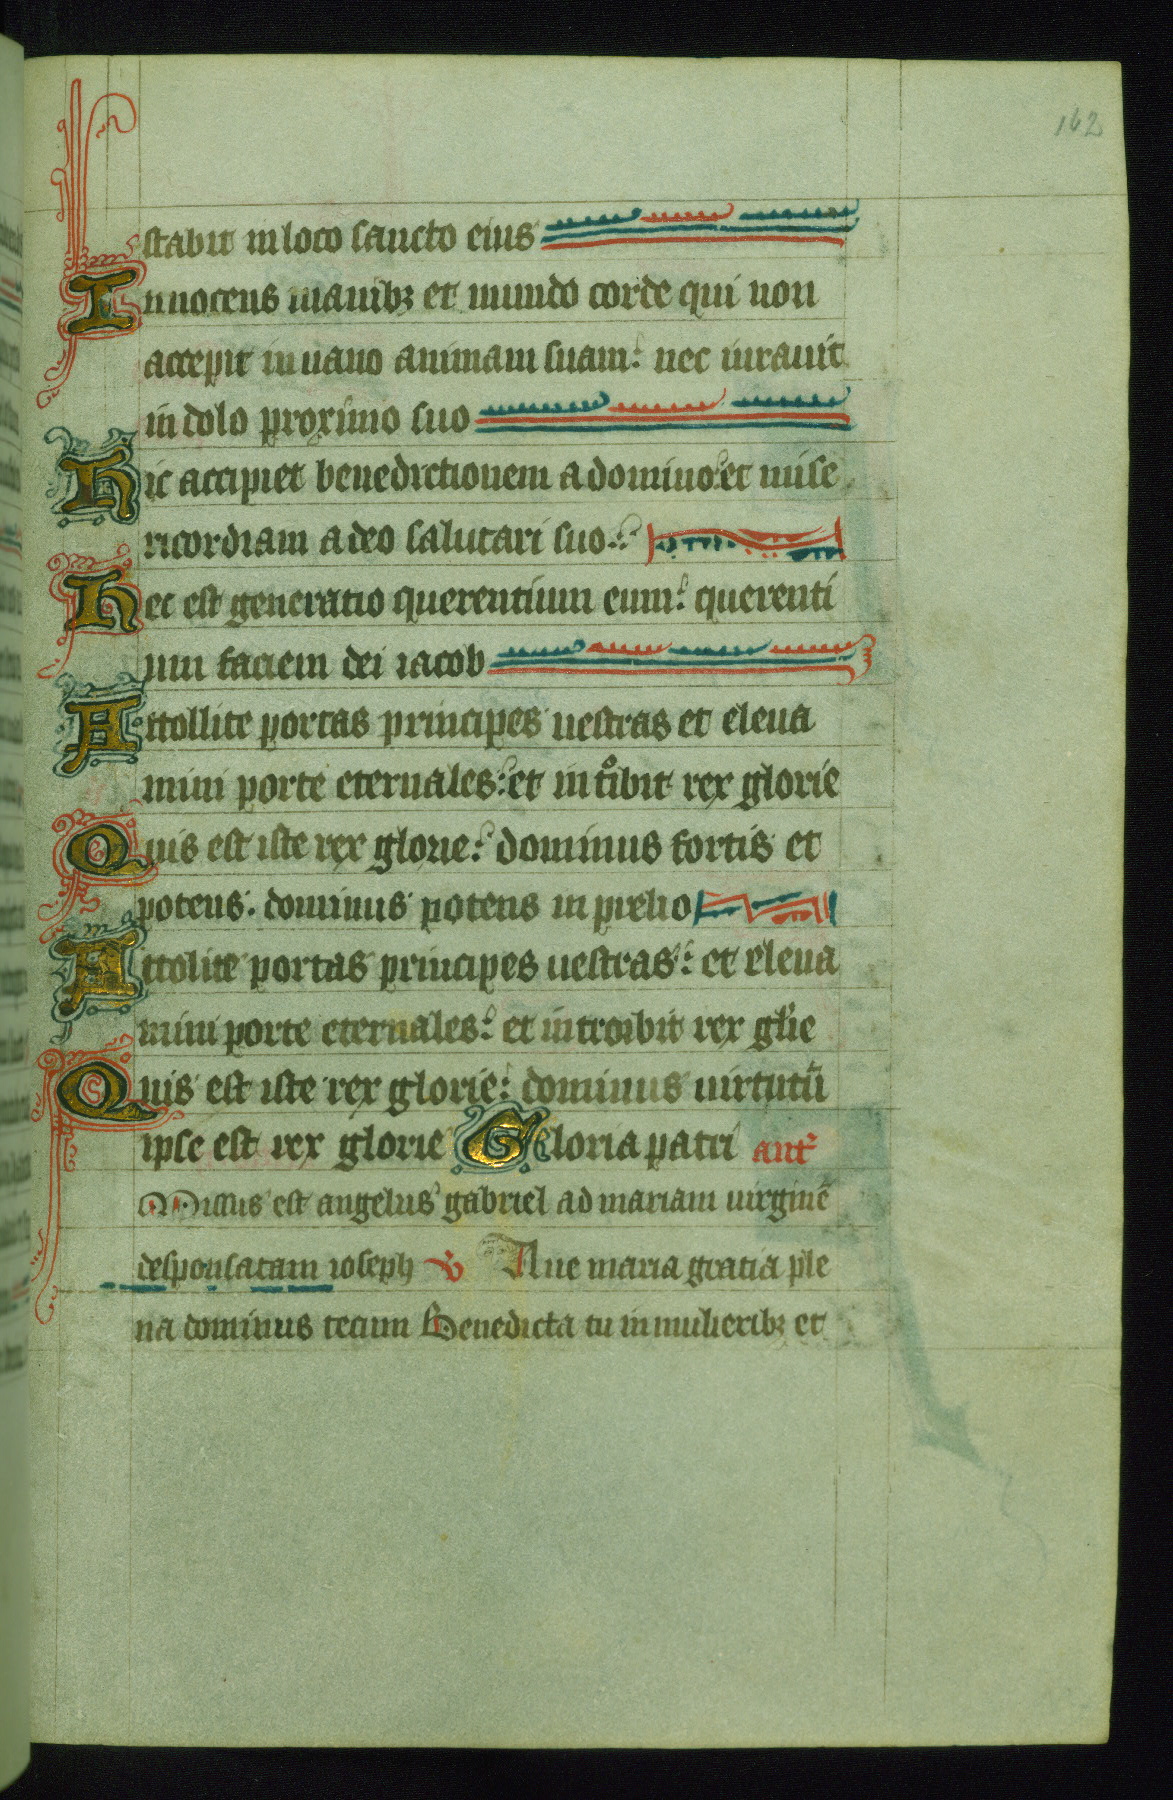 162
stabit in loco sancto eius
Innocens manibꝫ et mundo corde qui non
accepit in uano animam suam: nec iurauit
in dolo proximo suo
Hic accipiet benedictionem a domino: et mise
ricordiam a deo salutari suo:
Hec est generatio querentium eum: querenti
um faciem dei iacob
Attollite portas principes uestras et eleua
mini porte eternales: et intͦibit rex glorie
Quis est iste rex glorie: dominus fortis et
potens: dominus potens in prelio
Attolite portas principes uestras: et eleua
mini porte eternales: et introibit rex gl'ie
Quis est iste rex glorie: dominus uirtutū
ipse est rex glorie Gloria patri ant'
Missus est angelus gabriel ad mariam uirginē
desponsatam ioseph ℣ Aue maria gratia ple
na dominus tecum Benedicta tu in mulieribꝫ et